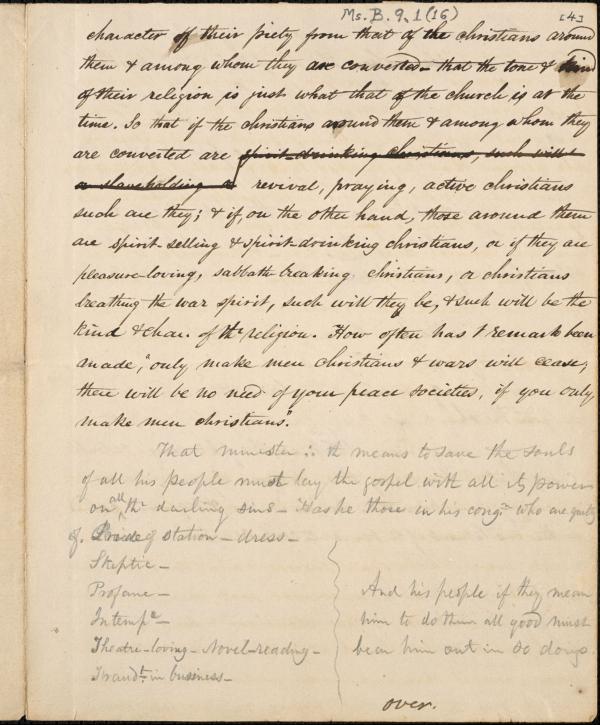 Ms. B. 9. 1 (16)
[4]
character of their piety from that of the christians around
them & among whom they are converted - that the tone & kind
of their religion is just what that of the church is at the
time. So that if the christians around them & among whom they
are converted are spirit-drinking christians, such will
a slaveholding revival, praying, active christians
such are they; & if, on the other hand, those around them
are spirit-selling & spirit-drinking christians, or if they are
pleasure-loving, sabbath-breaking christians, or christians
breathing the war spirit, such will they be, & such will be the
kind & char. of thr religion. How often has t remark been
made, "only make men christians & wars will cease,
there will be no need of your peace societies, if you only
make men christians".
That minister ∴ tt means to save the souls
of all his people must lay the gospel with all its power
on all thr darling sins - Has he those in his congn who are guilty
of. Pride of station - dress -
Skeptic -
Profane -
Intempe -
Theatre-loving - Novel-reading -
Fraudt in business -
And his people if they mean
him to do them all good must
bear him out in so doing.
over.